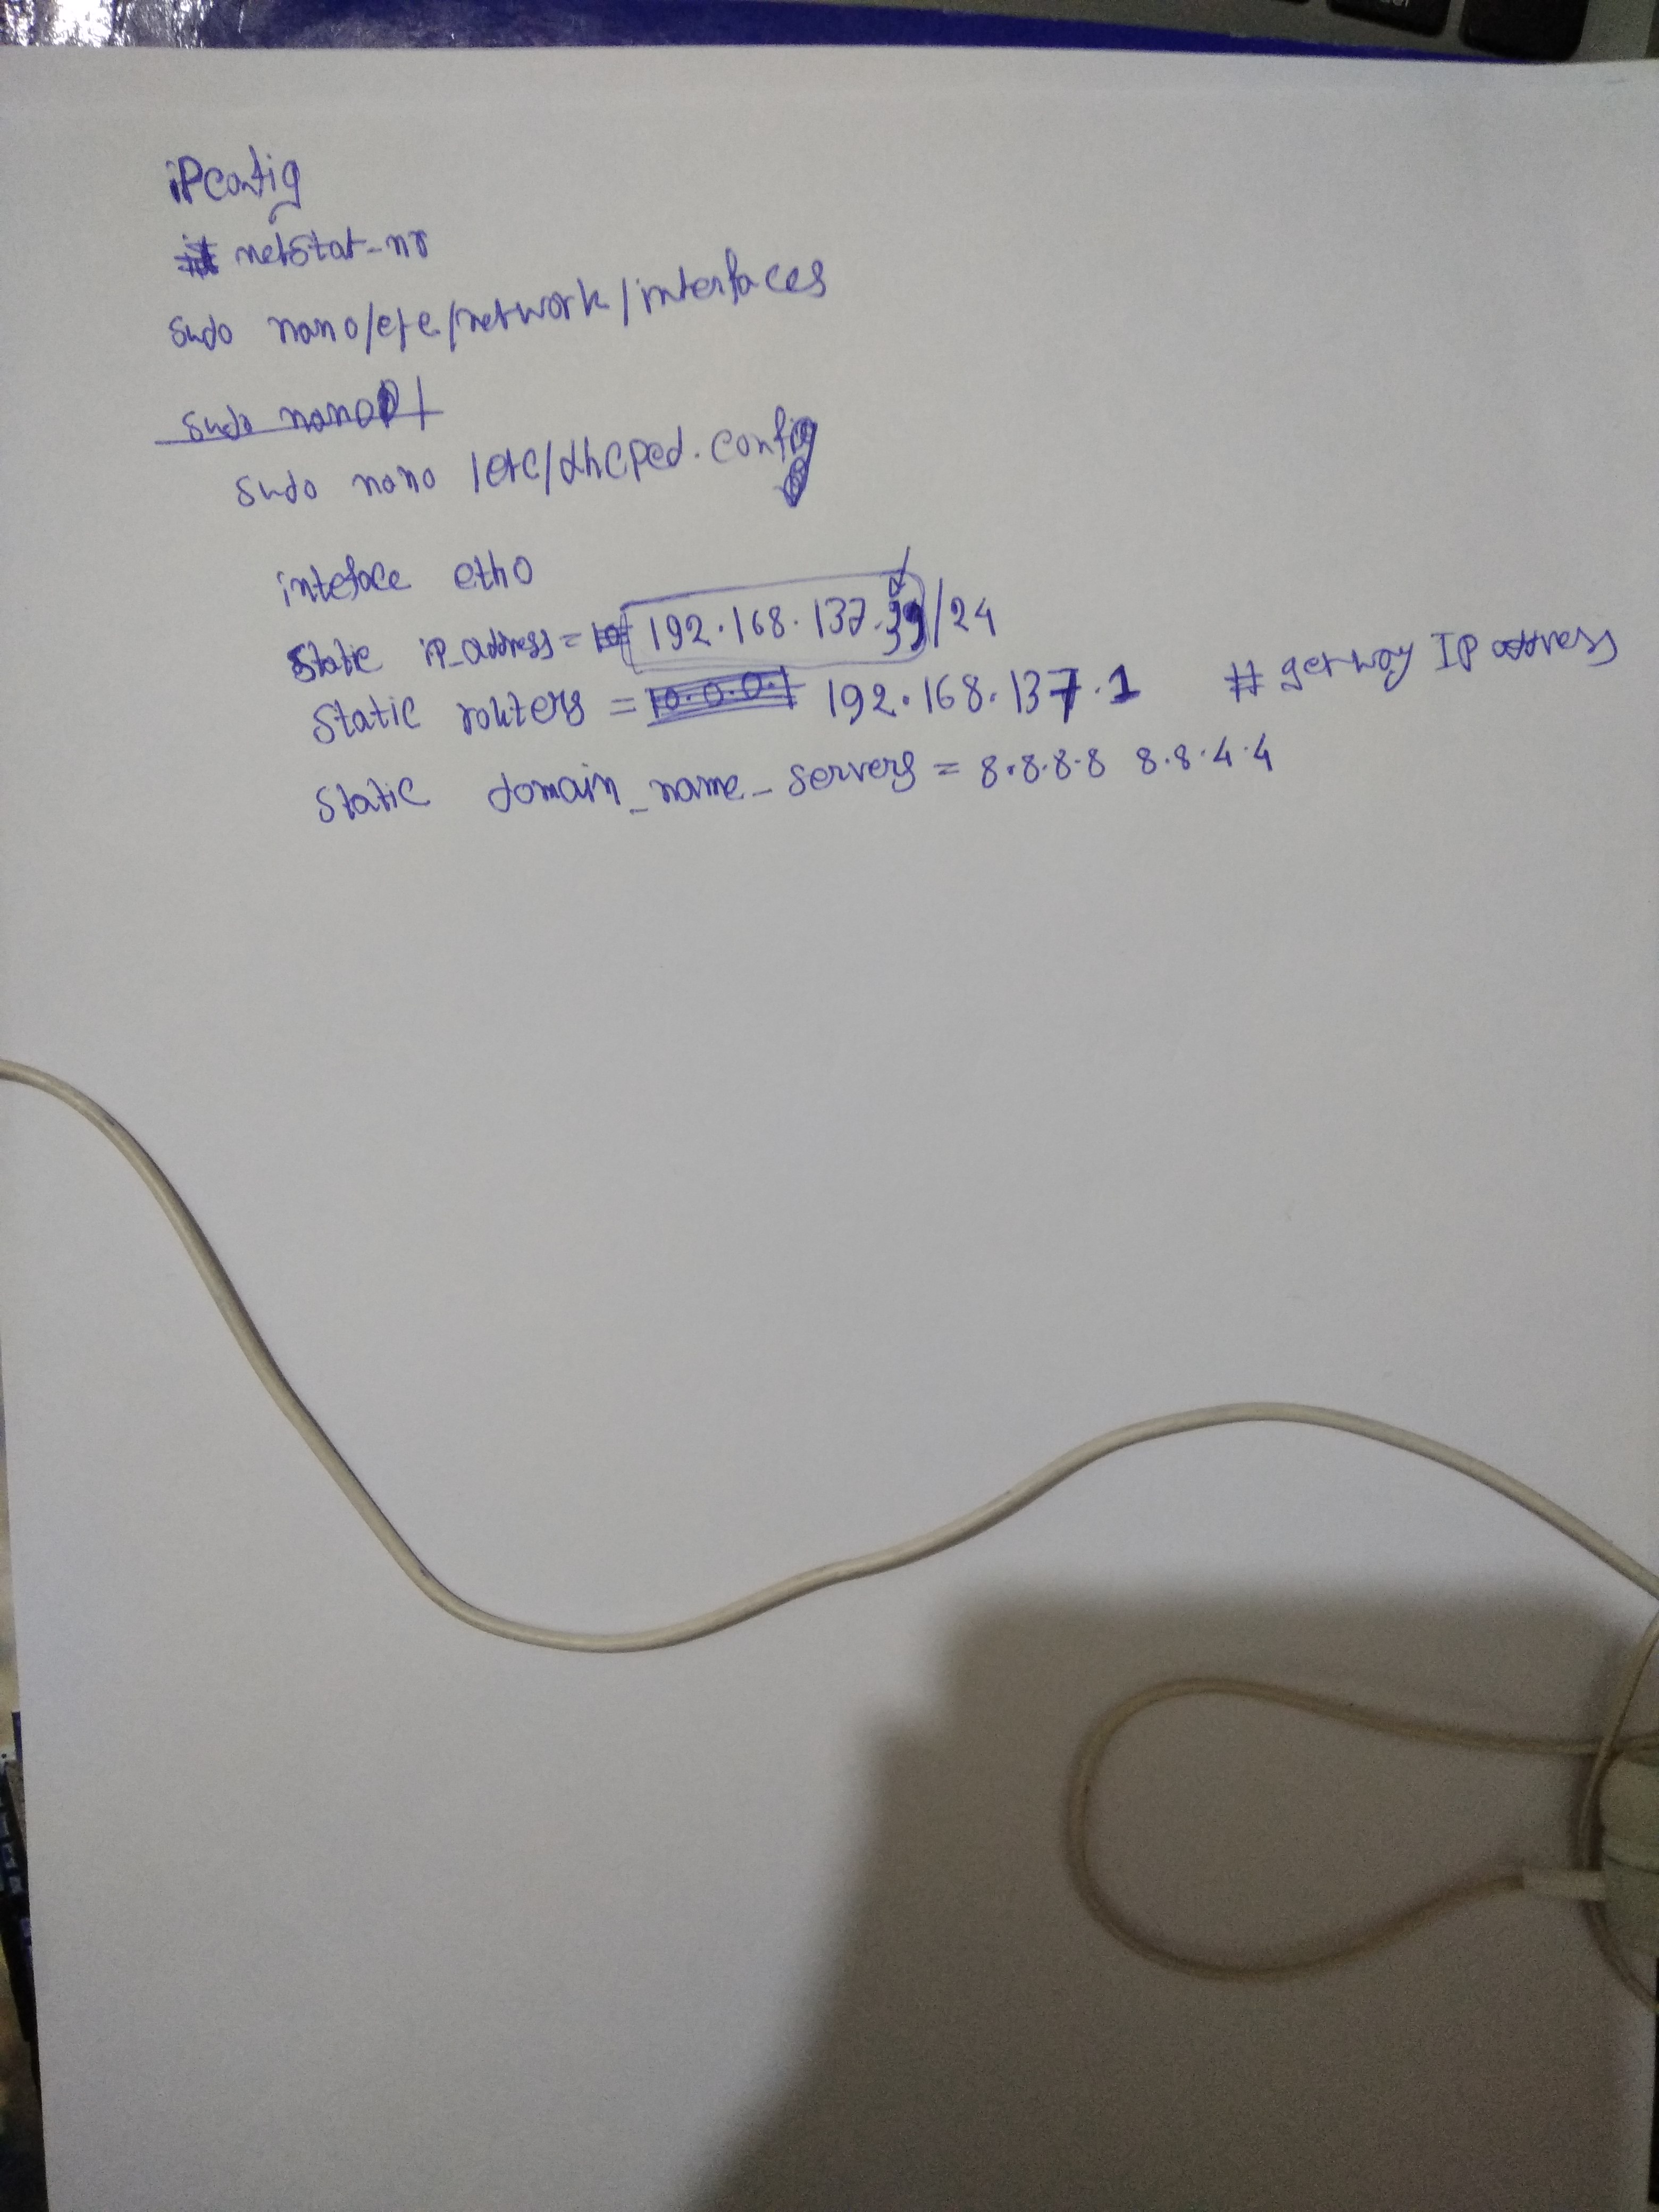 iPconfig
netstat-nr
sudo nano/etc/network/interfaces
sudo nano /
sudo nano /etc/dhcpcd.config
inteface eth0
static iP_address = 192.168.137.99/24
static routers = 10.0.0.1 192.168.137.1 # getway IP address
static domain_name_servers = 8.8.8.8 8.8.4.4